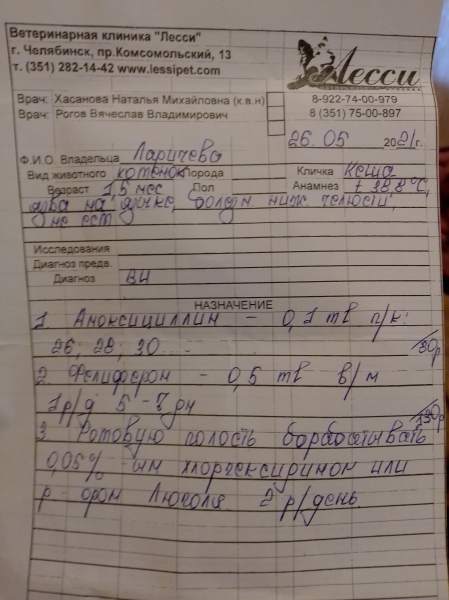 Ветеринарная клиника "Лесси"
г. Челябинск, пр.Комсомольский, 13
т. (351) 282-14-42 www.lessipet.com
Лесси
Врач: Хасанова Наталья Михайловна (к.в.н)
Врач: Рогов Вячеслав Владимирович
8-922-74-00-979
8 (351) 75-00-897
26.05 2021г.
Ф.И.О. Владельца Ларичева
Вид животного котенок Порода Кличка Кеша
Возраст 1,5 мес Пол Анамнез t 38.8°C,
язва на язычке, болезн. ниж. челюсти,
не ест
Исследования
Диагноз предв.
Диагноз ВИ
НАЗНАЧЕНИЕ
1. Амоксициллин - 0,1 ml п/к.
26; 28; 30
2. Фелиферон - 0,5 ml в/м
1р/д 5-7 дн
3. Ротовую полость
0,05% -ым хлоргексидином или
р-ором Люголя 2 р/день.